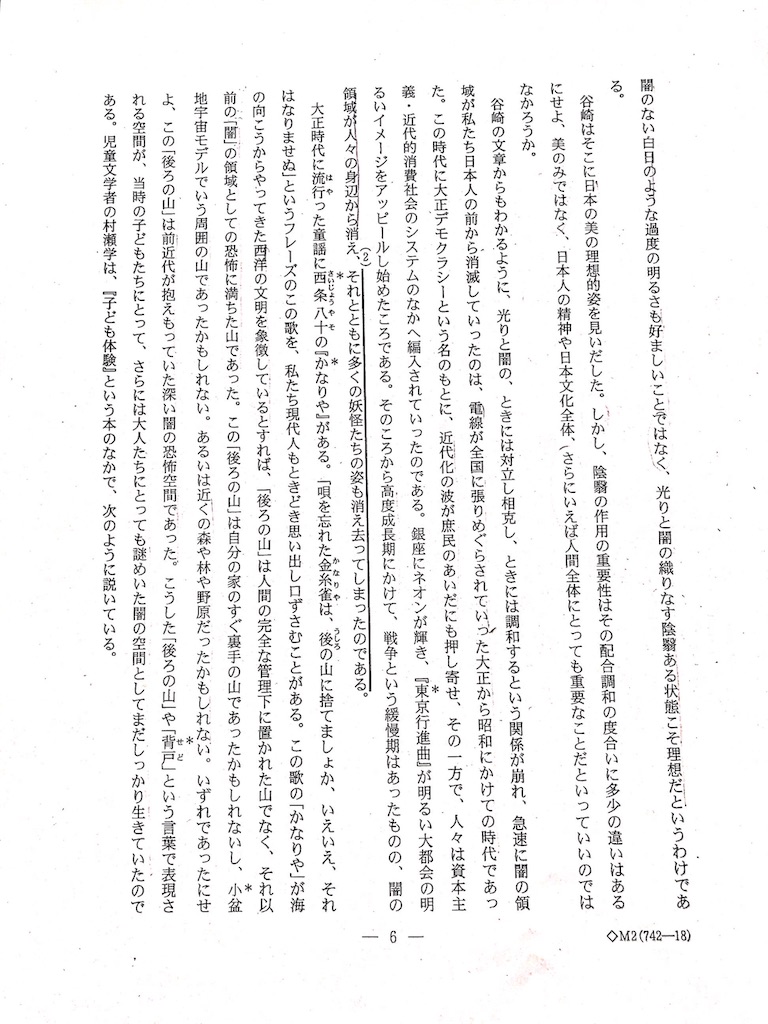 闇のない白日のような過度の明るさも好ましいことではなく、光りと闇の織りなす陰翳ある状態こそ理想だというわけであ
る。
谷崎はそこに日本の美の理想的姿を見いだした。しかし、陰翳の作用の重要性はその配合調和の度合いに多少の違いはある
にせよ、美のみではなく、日本人の精神や日本文化全体、(さらにいえば人間全体にとっても重要なことだといっていいのでは
なかろうか。
谷崎の文章からもわかるように、光りと闇の、ときには対立し相克し、ときには調和するという関係が崩れ、急速に闇の領
域が私たち日本人の前から消滅していったのは、電線が全国に張りめぐらされていった大正から昭和にかけての時代であっ
た。この時代に大正デモクラシーという名のもとに、近代化の波が庶民のあいだにも押し寄せ、その一方で、人々は資本主
義・近代的消費社会のシステムのなかへ編入されていったのである。銀座にネオンが輝き、『東京行進曲』*が明るい大都会の明
るいイメージをアッピールし始めたころである。そのころから高度成長期にかけて、戦争という緩慢期はあったものの、闇の
領域が人々の身辺から消え、(2)それとともに多くの妖怪たちの姿も消え去ってしまったのである。
大正時代に流行(はや)った童謡に西条八十(さいじょうやそ)*の『かなりや』*がある。「唄を忘れた金糸雀(かなりや)は、後(うしろ)の山に捨てましょか、いえいえ、それ
はなりませぬ」というフレーズのこの歌を、私たち現代人もときどき思い出し口ずさむことがある。この歌の「かなりや」が海
の向こうからやってきた西洋の文明を象徴しているとすれば、「後ろの山」は人間の完全な管理下に置かれた山でなく、それ以
前の「闇」の領域としての恐怖に満ちた山であった。この「後ろの山」は自分の家のすぐ裏手の山であったかもしれないし、小盆*
地宇宙モデルでいう周囲の山であったかもしれない。あるいは近くの森や林や野原だったかもしれない。いずれであったにせ
よ、この「後ろの山」は前近代が抱えもっていた深い闇の恐怖空間であった。こうした「後ろの山」や「背戸(せど)*」という言葉で表現さ
れる空間が、当時の子どもたちにとって、さらには大人たちにとっても謎めいた闇の空間としてまだしっかり生きていたので
ある。児童文学者の村瀬学は、『子ども体験』という本のなかで、次のように説いている。
— 6 —
◇M2(742—18)